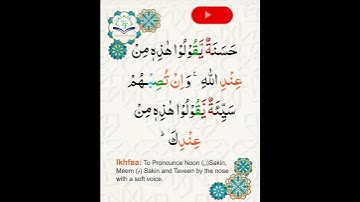 حَسَنَةٌ يَّقُوْلُوْا هٰذِهٖ مِنْ
عِنْدِ اللّٰهِ ۚ وَاِنْ تُصِبْهُمْ
سَيِّئَةٌ يَّقُوْلُوْا هٰذِهٖ مِنْ
عِنْدِكَ ؕ
Ikhfaa: To Pronounce Noon (ن)Sakin,
Meem (م) Sakin and Taveen by the nose
with a soft voice.